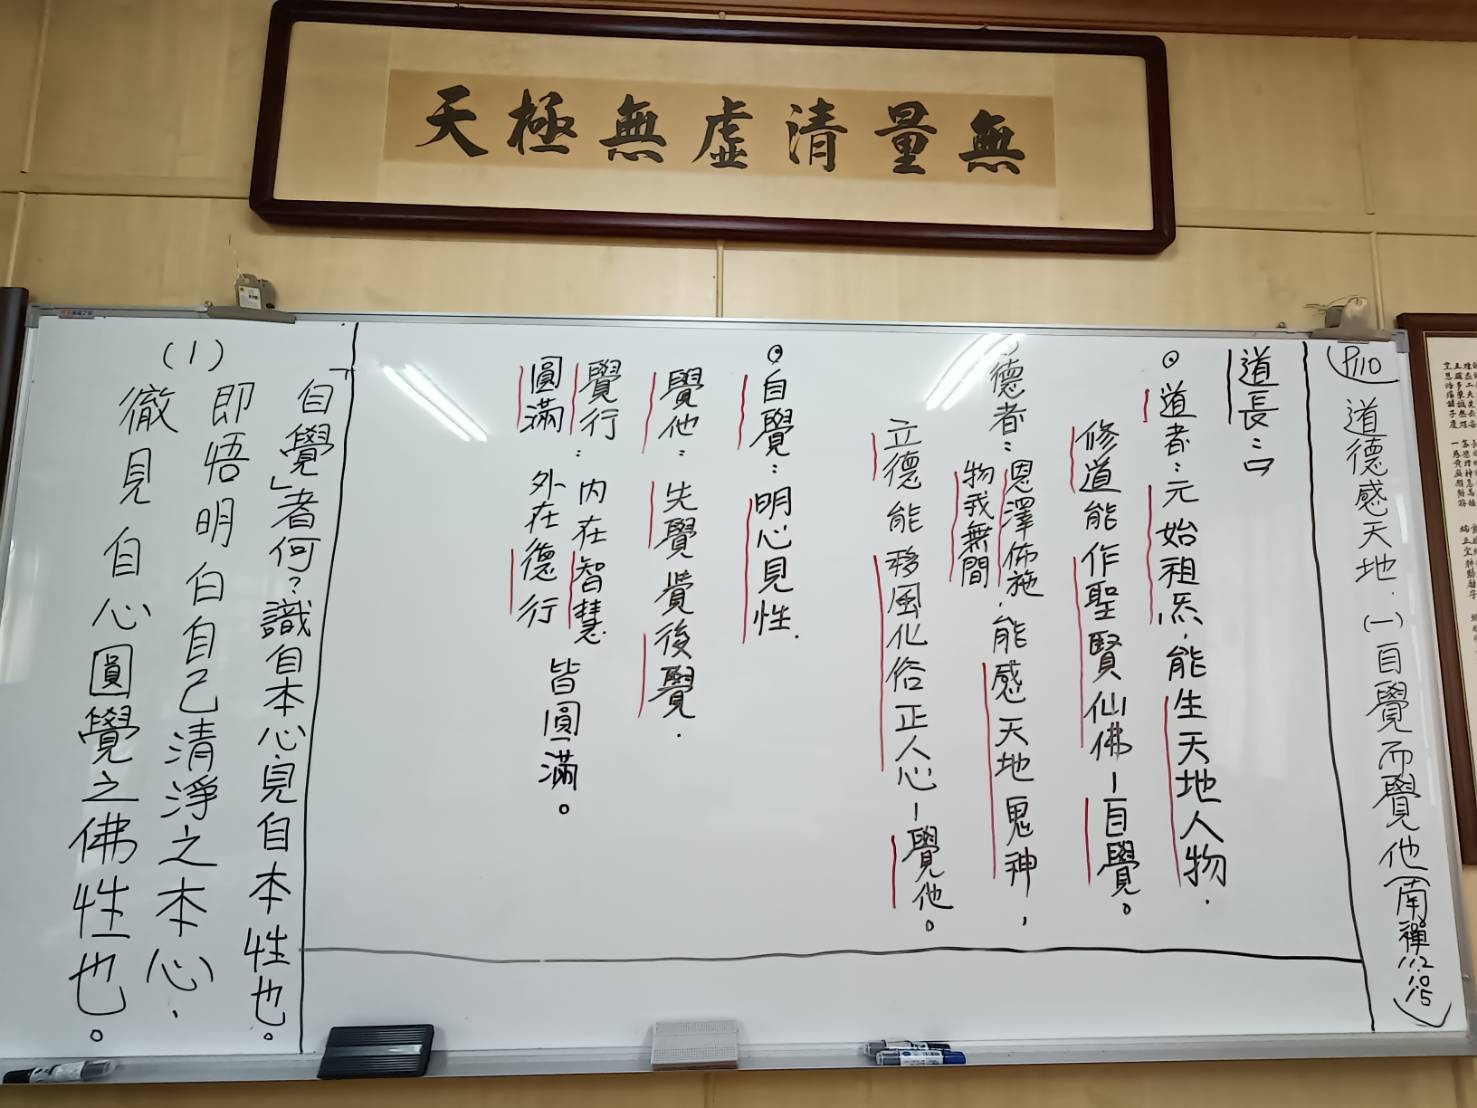 無量清虛無極天
P110
道德感天地.(一)自覺而覺他(南禪112.10.15)
道長:曰
⊙道者:元始祖炁.能生天地人物.
修道能作聖賢仙佛—自覺。
德者:恩澤佈施.能感天地鬼神,
物我無間
立德能移風化俗正人心—覺他。
⊙自覺:明心見性.
覺他:先覺覺後覺.
覺行圓滿:內在智慧
外在德行
皆圓滿。
「自覺」者何?識自本心見自本性也。
(1)
即悟明白自己清淨之本心.
徹見自心圓覺之佛性也。